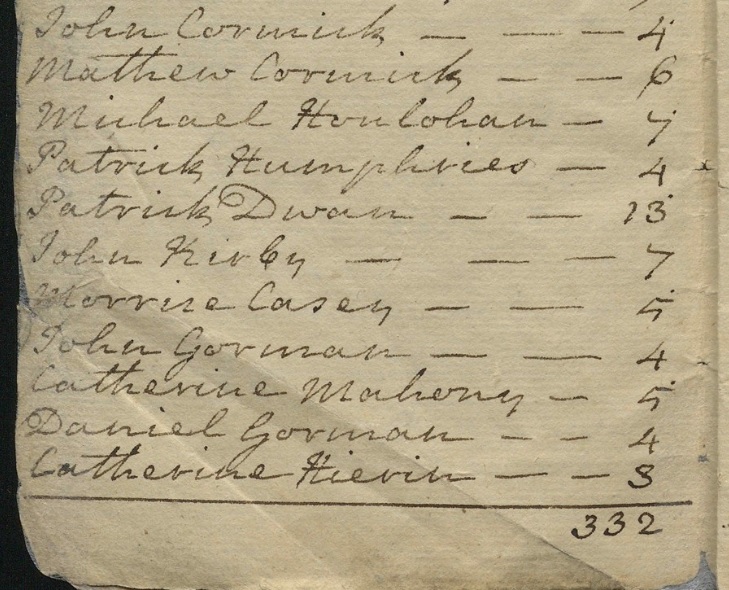 John Cormick — — — 4
Mathew Cormick — — 6
Michael Houlohan — 7
Patrick Humphries — 4
Patrick Dwan — — 13
John Kirby — — — 7
Morrise Casey — — 5
John Gorman — — 4
Catherine Mahony — 5
Daniel Gorman — — 4
Catherine Kievin — — 3
332